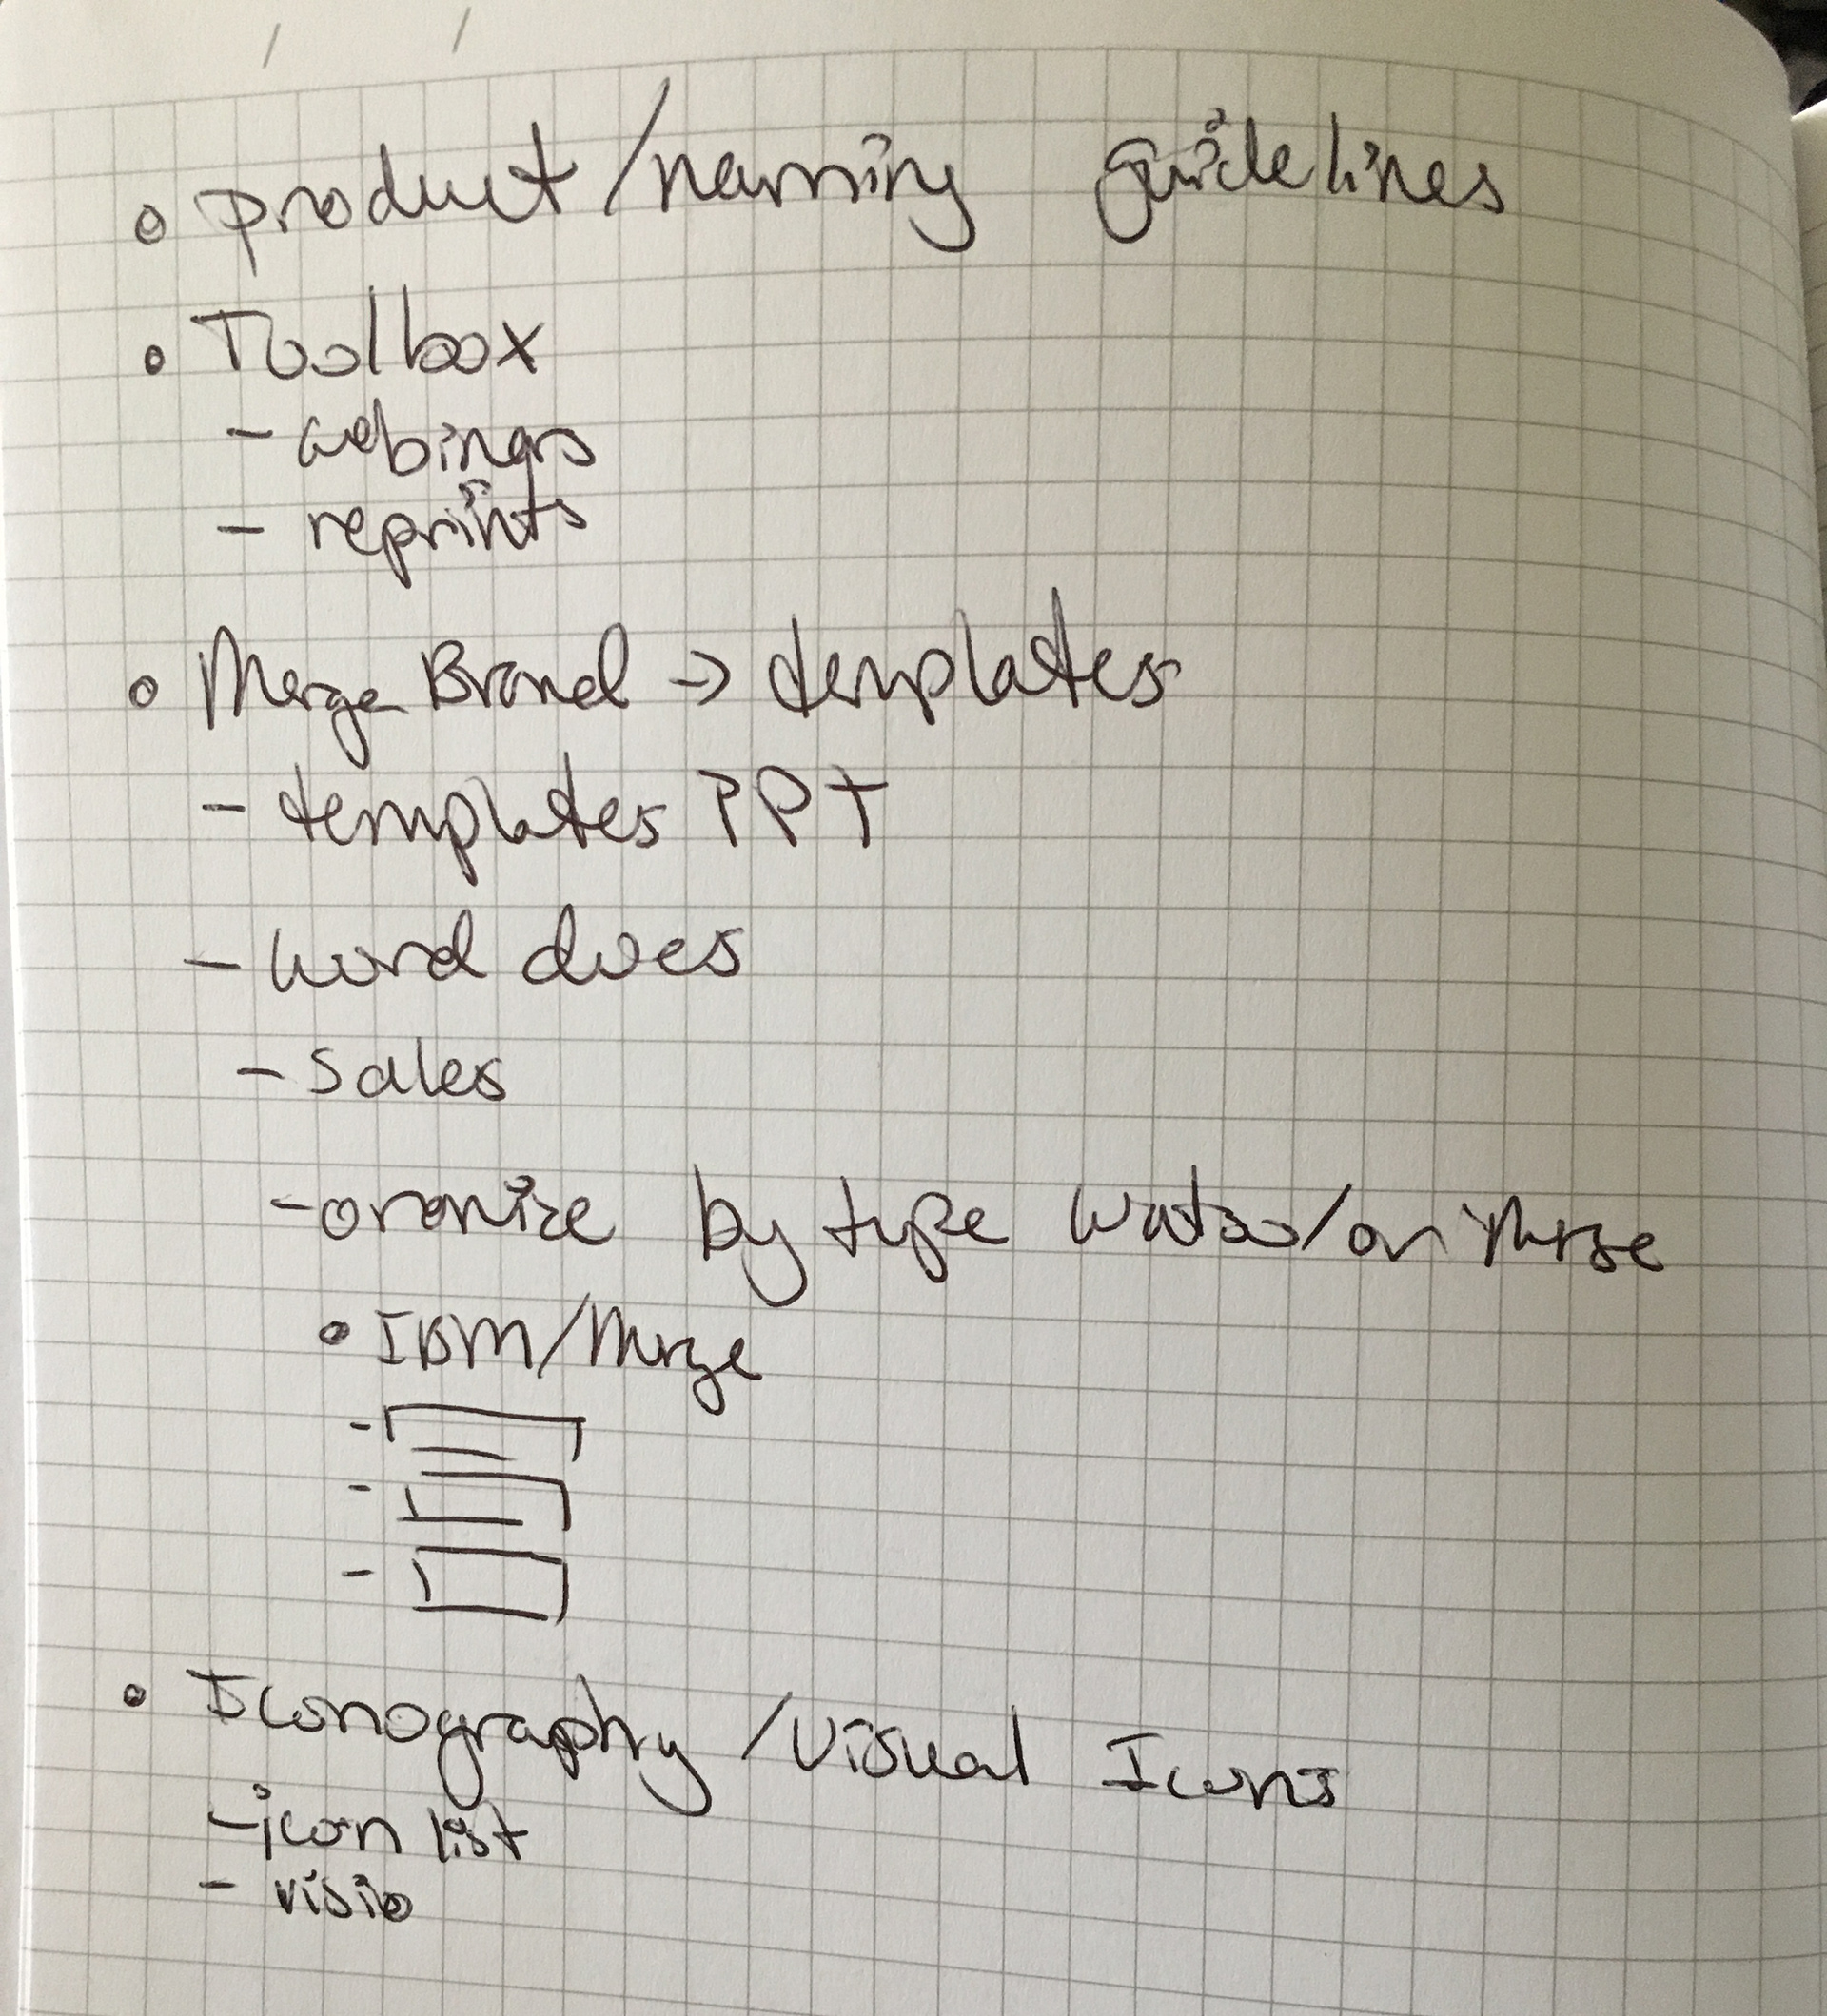 • product/naming guidelines
• Toolbox
- webinars
- reprints
• Merge Brand → templates
- templates PPT
- word docs
- sales
- oranize by type Watson/or Merge
• IBM/Merge
-
-
-
• Iconography/Visual Icons
- icon list
- visio